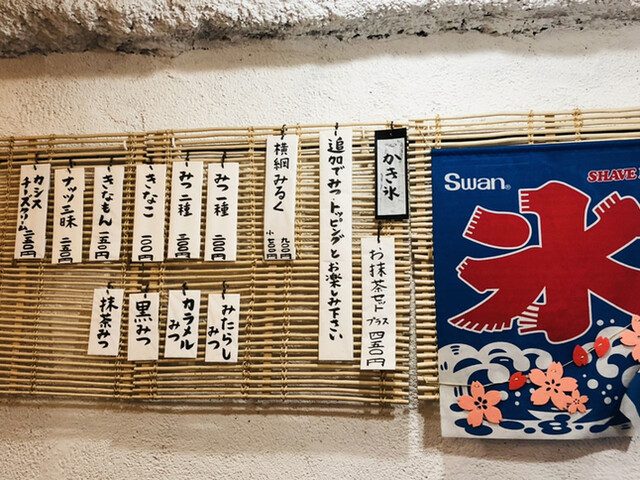 かき氷
追加でみつ、トッピングとお楽しみ下さい
お抹茶セット プラス 四五〇円
横綱みるく
九〇〇円
小 七〇〇円
みつ一種 二〇〇円
みつ二種 三〇〇円
きなこ 一〇〇円
きなもん 一五〇円
ナッツ三昧 二五〇円
カシスチーズクリーム 二五〇円
みたらしみつ
カラメルみつ
黒みつ
抹茶みつ
Swan®
SHAVE
氷